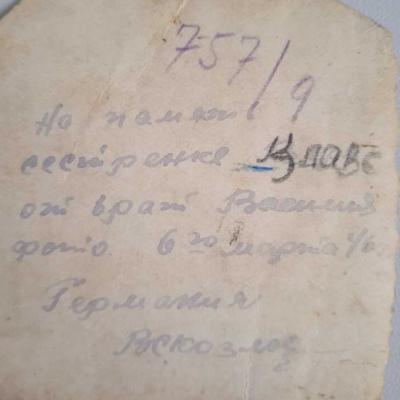 757/9
На память
сестренке Клаве
от врат Василия
фото 6го марта
Германия